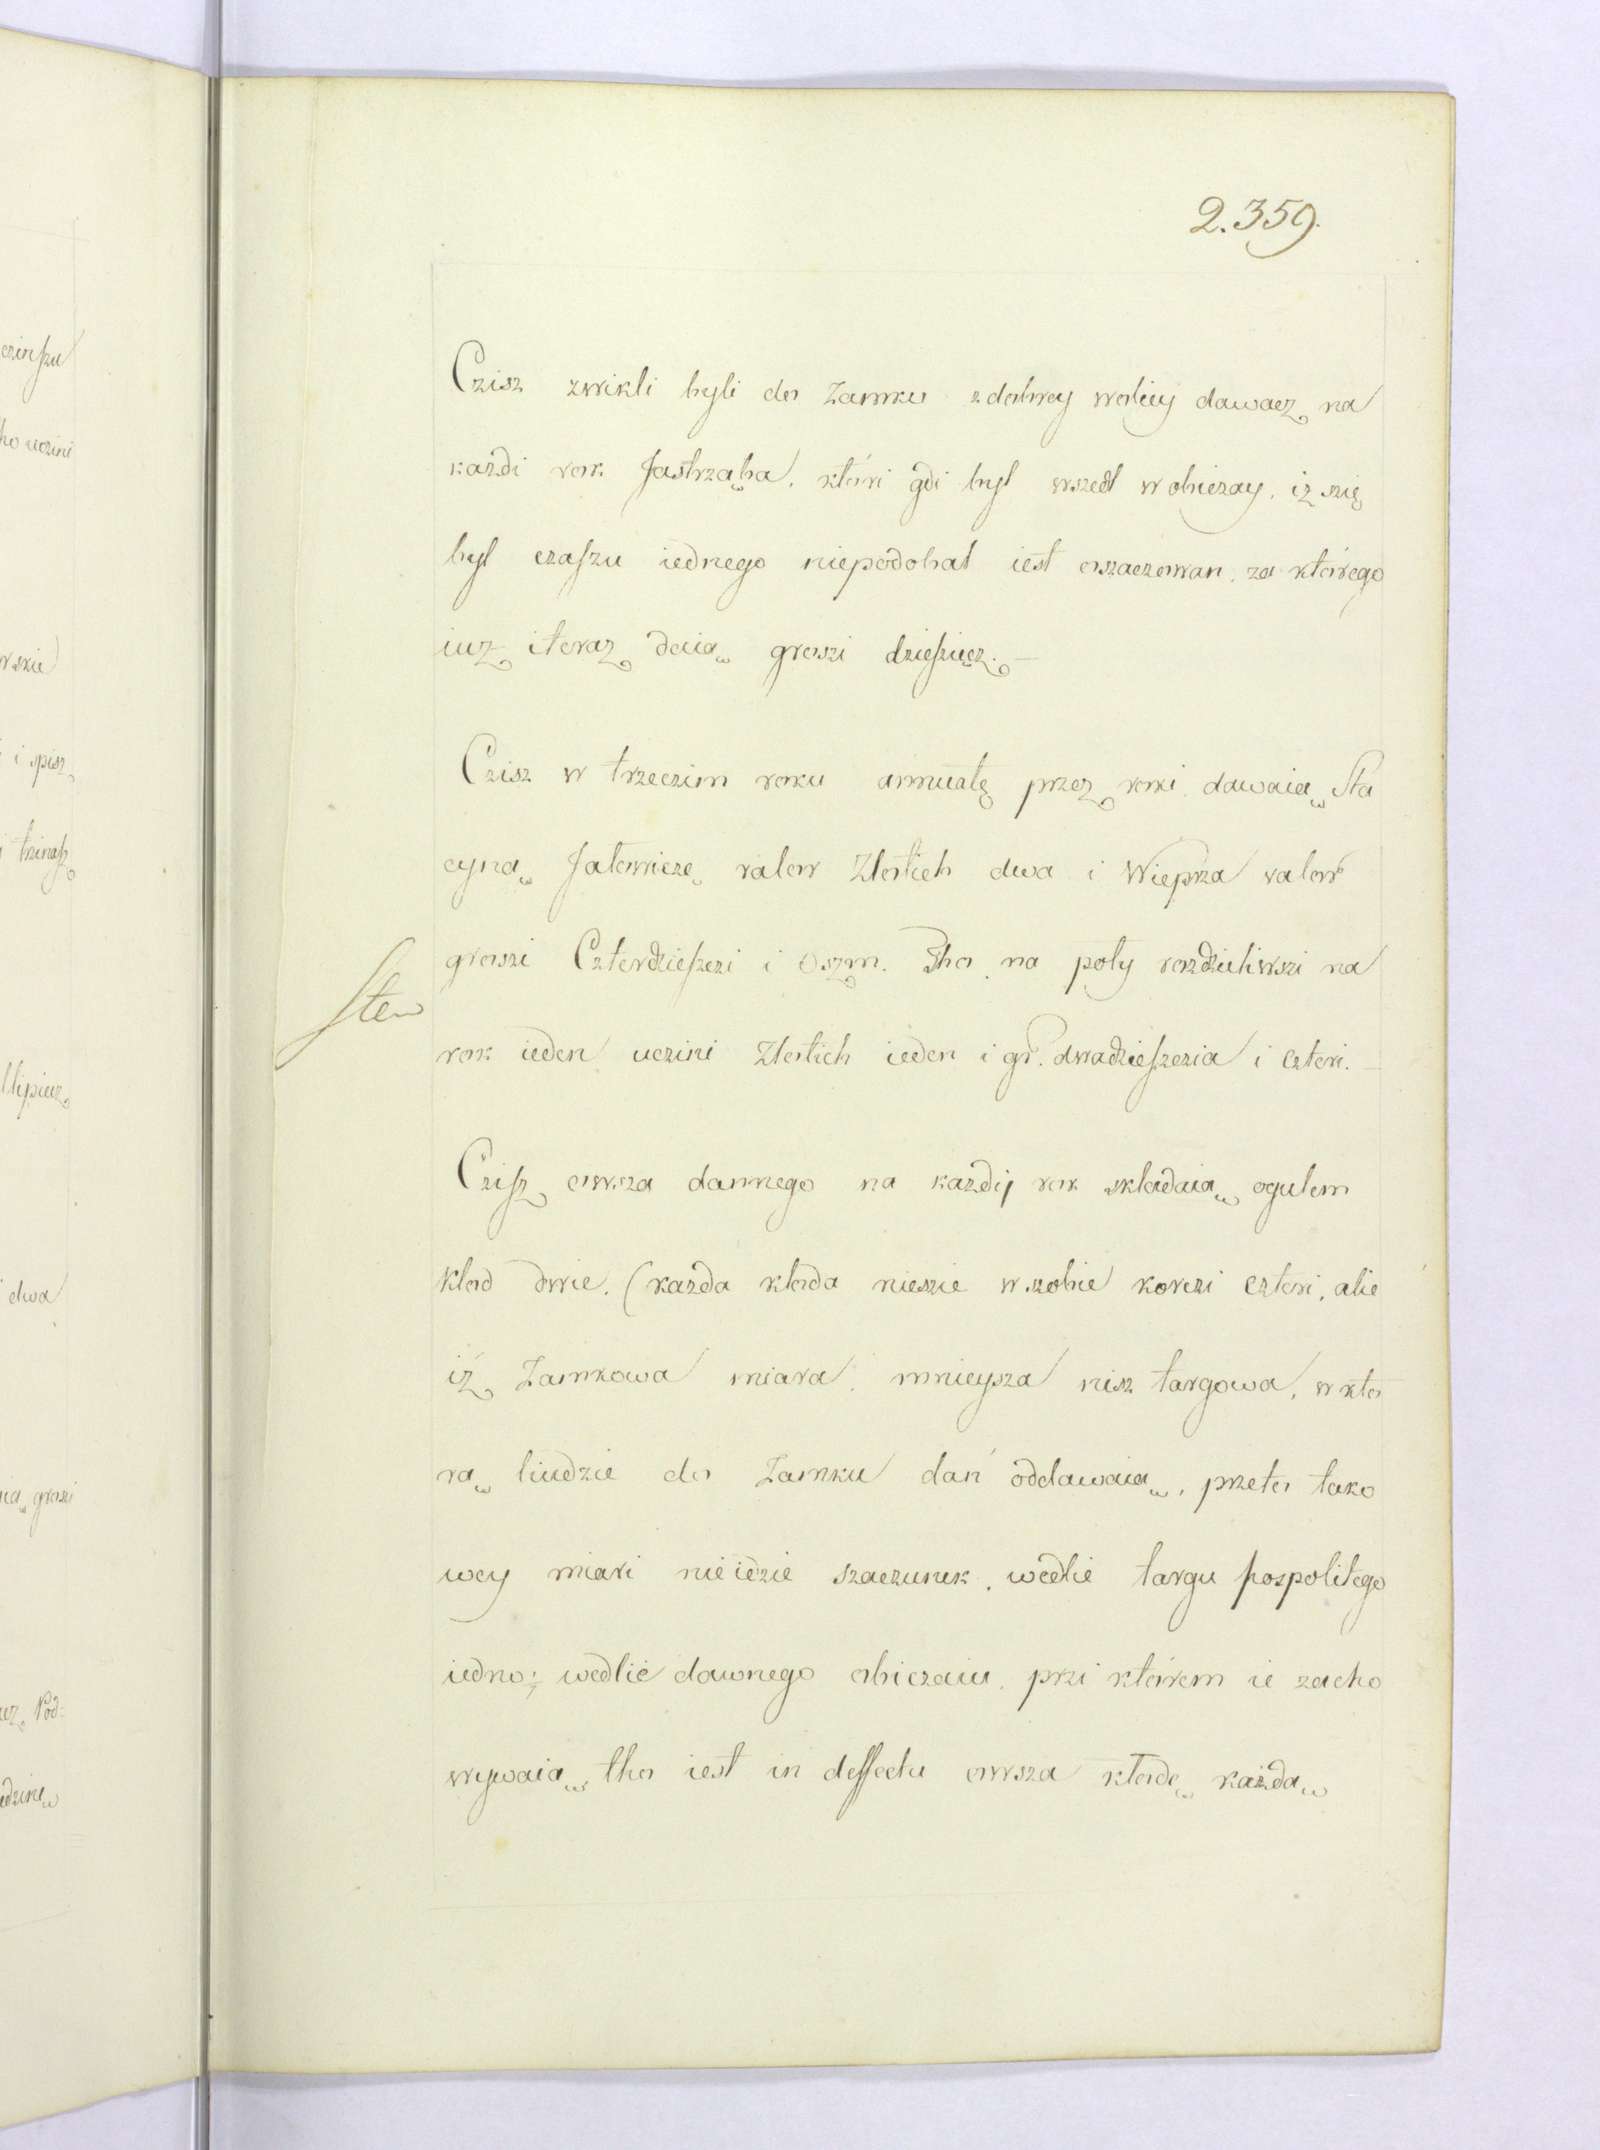 2.359.
Czisz zwikli byli do Zamku zdobrey woliey dawacz na
każdi rok Jastrząba, ktori gdi był wszedł w obiczay, iż się
był czaszu iednego niepodobał iest oszaczowan, za którego
iuż i teraz daią groszi dzieszięcz. —
Czisz w trzeczim roku annuatę przez roki dawaią Sta
cyną Jałowiczę valor Złotich dwa i Wieprza valor
groszi Czterdzieszczi i Oszm. Tho na poły rozdzieliwszi na
rok ieden uczini Złotich ieden i gr. dwadzieszczia i cztori. —
Czisz owsza dannego na każdij rok składaią ogulem
kłod dwie, (każda kłoda niesie w sobie korczi cztori, alie
iż Zamkowa miara, mnieysza nisz targowa, w kto
rą liudzie do Zamku dań oddawaią, przeto tako
wey miari nie idzie szaczunek, wedlie targu pospolitego
iedno; wedlie dawnego obiczaiu, przi którem ie zacho
wywaią, tho iest in deffectu owsza kłodę każdą
czinszu
ho uczini
i spisz
dwa